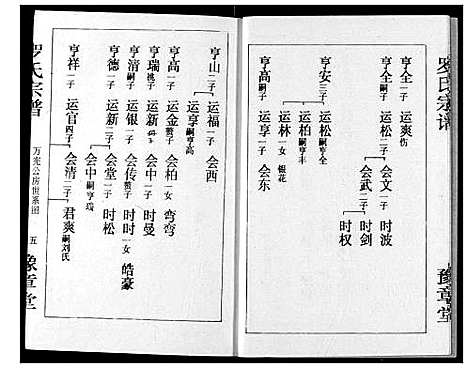 罗氏宗谱
豫章堂
亨全 一子 运爽 伤
亨全 嗣子 运松 二子 会文 一子 时波
会武 二子 时剑
时权
亨安 三子 运松 嗣亨全
运柏 嗣亨丰
运林 一女 银花
亨高 嗣子 运亨 一子 会东
亨山 二子 运福 一子 会西
运亨 嗣亨高
亨高 一子 运金 赘子 会柏 一女 弯弯
亨瑞 桃子 运新 会中 一子 时曼
亨清 嗣子 运银 一子 会传 赘子 时时 一女 皓豪
亨德 一子 运新 二子 会堂 一子 时松
会中 嗣亨瑞
亨祥 一子 运官 四子 会清 二子 君爽 嗣刘氏
罗氏宗谱
万宪公房世系图
五
豫章堂